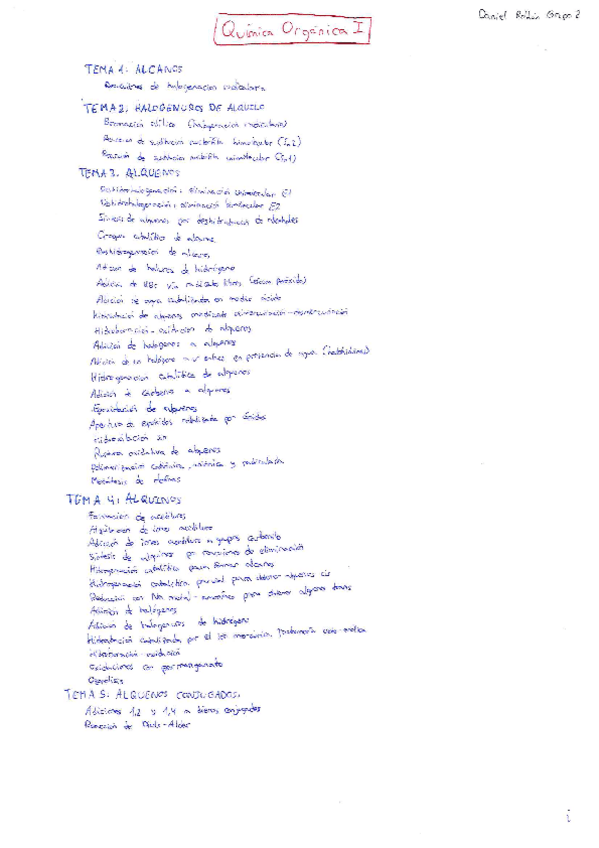 Daniel Roldán Grupo 2
Química Orgánica I
TEMA 1: ALCANOS
Reacciones de halogenación radicalaria
TEMA 2: HALOGENUROS DE ALQUILO
Bromación alílica (halogenación radicalaria)
Reacción de sustitución nucleófila bimolecular (SN2)
Reacción de sustitución nucleófila unimolecular (SN1)
TEMA 3: ALQUENOS
Deshidrohalogenación: eliminación unimolecular E1
Deshidrohalogenación: eliminación bimolecular E2
Síntesis de alquenos por deshidratación de alcoholes
Craqueo catalítico de alcanos
Deshidrogenación de alcanos
Adición de haluros de hidrógeno
Adición de HBr vía radicales libres (efecto peróxido)
Adición de agua catalizada en medio ácido
Hidratación de alquenos mediante oximercuriación-desmercuriación
Hidroboración-oxidación de alquenos
Adición de halógenos a alquenos
Adición de un halógeno a un alqueno en presencia de agua (halohidrinas)
Hidrogenación catalítica de alquenos
Adición de carbenos a alquenos
Epoxidación de alquenos
Apertura de epóxidos catalizada por ácidos
Hidroxilación sin
Ruptura oxidativa de alquenos
Polimerización catiónica, aniónica y radicalaria
Metátesis de olefinas
TEMA 4: ALQUINOS
Formación de acetiluros
Alquilación de iones acetiluro
Adición de iones acetiluro a grupos carbonilo
Síntesis de alquinos por reacciones de eliminación
Hidrogenación catalítica para formar alcanos
Hidrogenación catalítica parcial para obtener alquenos cis
Reducción con Na metal-amoníaco para obtener alquenos trans
Adición de halógenos
Adición de halogenuros de hidrógeno
Hidratación catalizada por el ion mercúrico, tautomería ceto-enólica
Hidroboración-oxidación
Oxidaciones con permanganato
Ozonólisis
TEMA 5: ALQUENOS CONJUGADOS.
Adiciones 1,2 y 1,4 a dienos conjugados
Reacción de Diels-Alder
i